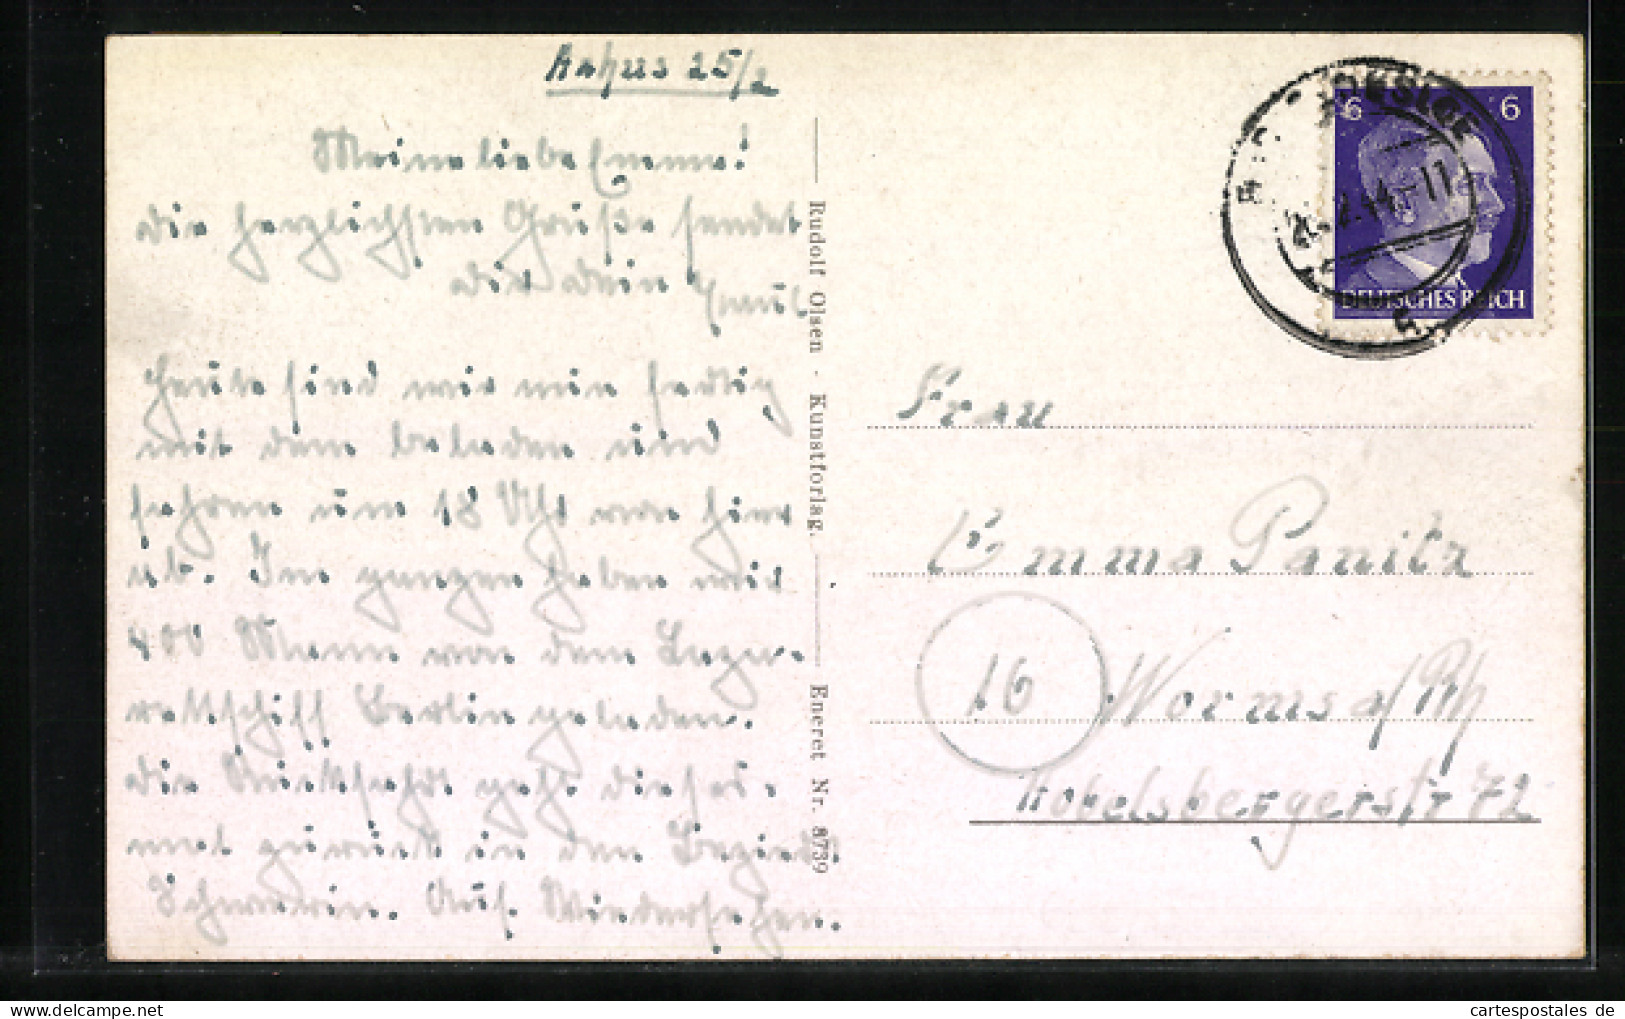 Aahus 25/2
Meine liebe Emma!
die herzlichsten Grüße sendet
dir dein Emul
Heute sind wir nun fertig
mit dem beladen und
fahren um 18 Uhr von hier
ab. Im ganzen haben wir
400 Mann von dem Laza-
rettschiff Berlin geladen.
Die Rückfahrt geht dieses-
mal zurück in den Bezirk
Schwerin. Auf Wiedersehen.
Rudolf Olsen · Kunstforlag.
Eneret Nr. 8739
6 6
DEUTSCHES REICH
.2.44.-11
Frau
Emma Panitz
16 Worms a/Rh
72
cartespostales de